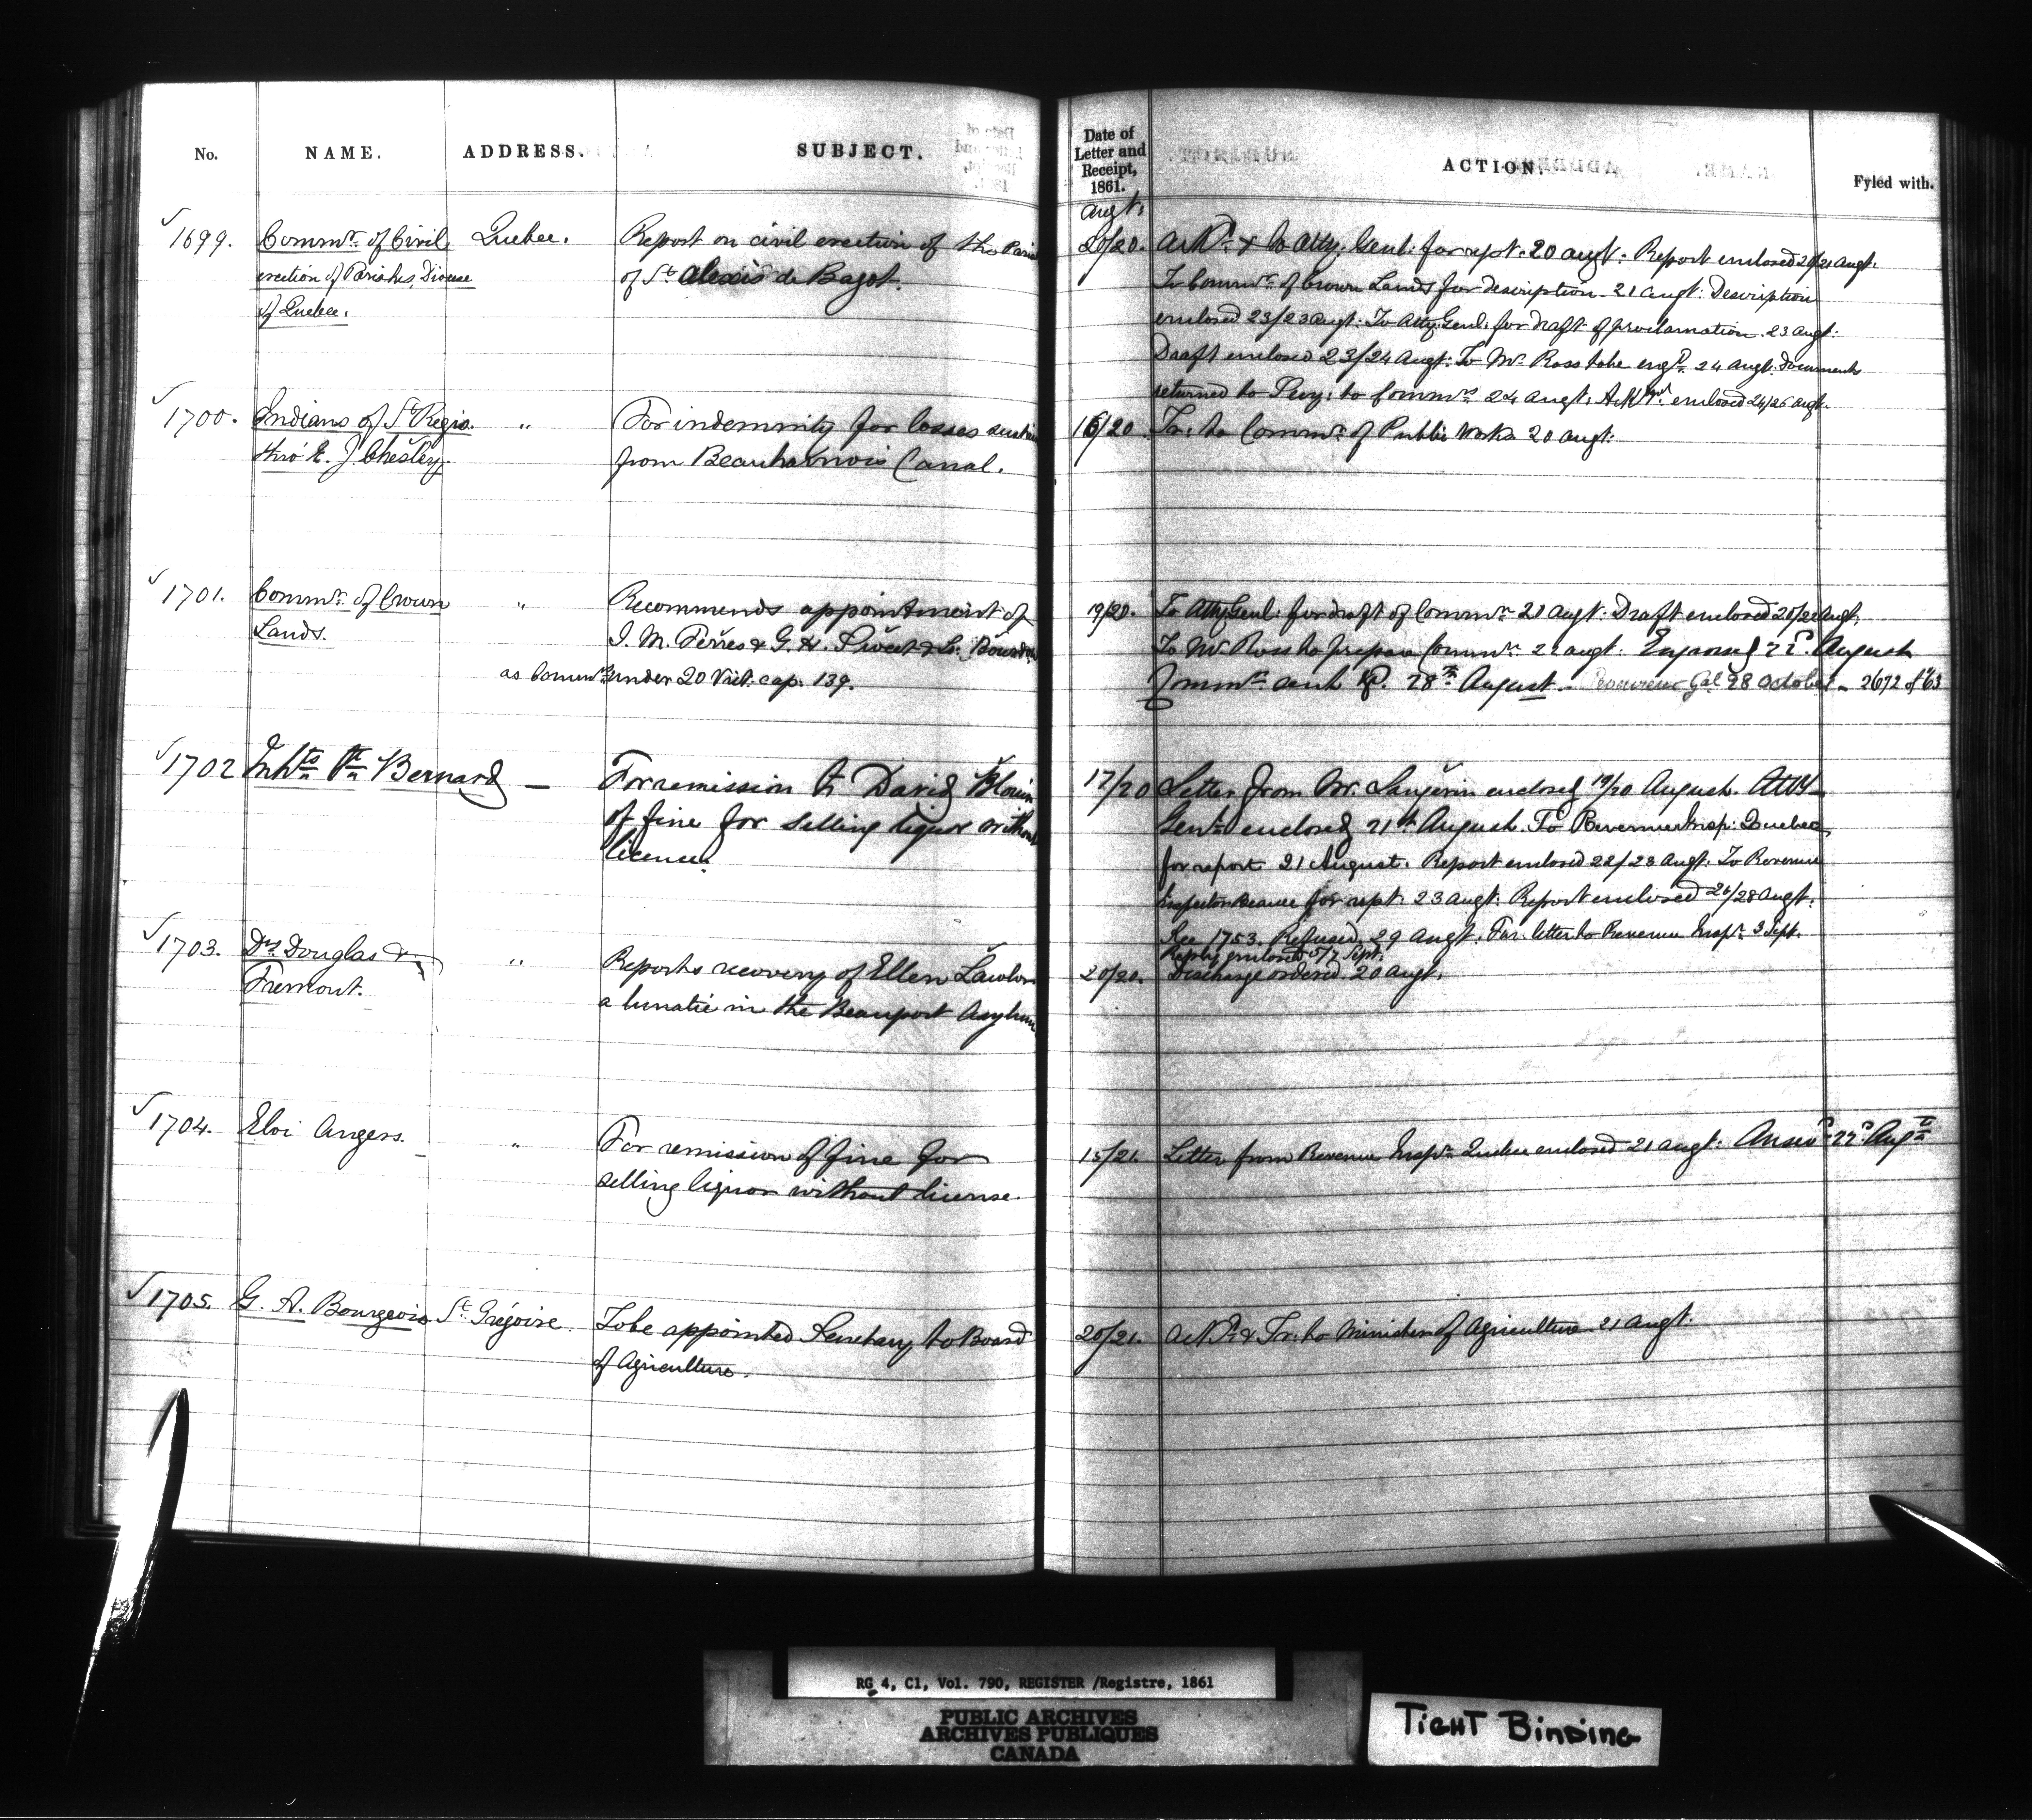 No. NAME. ADDRESS. SUBJECT. Date of Letter and Receipt, 1861. ACTION. Fyled with.
Augt.
1699. Commrs. of Civil Quebec. Report on civil erection of the Paris 20/20. Ackd. & to Atty. Genl. for rept. 20 augt. Report enclosed 20/21 Augt.
erection of Parishes, Diocese of St. Alexis de Bagot. To Commr. of Crown Lands for description. 21 augt. Description
of Quebec. enclosed 23/23 augt. To Atty. Genl. for draft of proclamation. 23 augt.
Draft enclosed 23/24 Augt. To Mr. Ross to be engd. 24 augt. Documents
returned to Secy. to Commrs. 24 augt. enclosed 24/26 augt.
1700. Indians of St. Regis. " For indemnity for losses sustai 16/20 Tr. to Commr. of Public Works 20 augt.
thro' E. J. Chesley. from Beauharnois Canal.
1701. Commr. of Crown " Recommends appointment of 19/20. To Atty. Genl. for draft of Commn. 20 augt. Draft enclosed 20/21 Augt.
Lands. & G. H. Sweet & To Mr. Ross to prepare Commn. 21 augt. Engrossed 22d. August
as Commrs. under 20 Vict. cap. 139. Commn. sent 28th August. 28 October 2672 of 63
1702 Inhts. Bernard — For remission to David Blouin 17/20 Letter from Mr. Langevin enclosed 19/20 August. Atty
of fine for selling liquor without Genl. enclosed 21st August. To Revenue Insp. Quebec
license. for report 21 August. Report enclosed 22/23 Augt. To Revenue
Inspector Beauce for rept. 23 augt. Report enclosed 26/28 Augt.
See 1753. Refused 29 augt. Fur. letter to Revenue Inspr. 3 Sept.
Reply enclosed 5/7 Sept.
1703. Drs. Douglas & " Reports recovery of Ellen Lawlor 20/20. Discharge ordered 20 augt.
Fremont. a lunatic in the Beauport Asylum
1704. Eloi Angers. " For remission of fine for 15/21. Letter from Revenue Inspr. Quebec enclosed 21 augt. Answd. 22d. Augt.
selling liquor without license.
1705. G. A. Bourgeois St. Grégoire. To be appointed Secretary to Board 20/21. Ackd. & Tr. to Minister of Agriculture 21 augt.
of Agriculture.
RG 4, C1, Vol. 790, REGISTER /Registre, 1861
PUBLIC ARCHIVES
ARCHIVES PUBLIQUES
CANADA
TIGHT BINDING